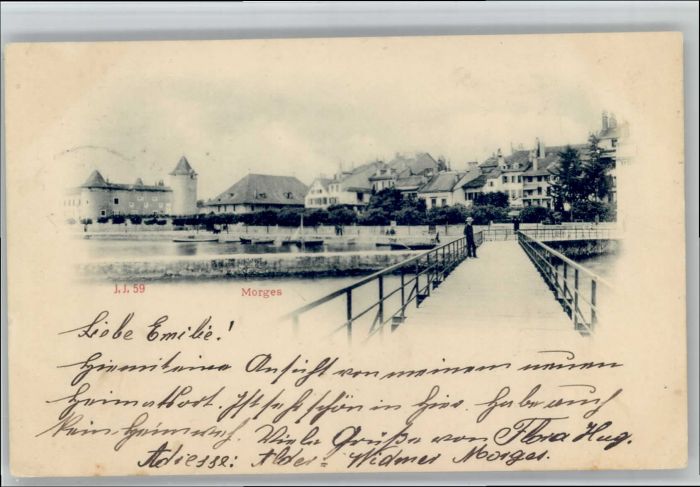 J.J. 59
Morges
Liebe Emilie!
Hiermit eine Ansicht von meinem neuen
Heimatsort. Ist sehr schön in hier. habe auch
kein Heimweh. Viele Grüße von Flora Hug.
Adresse: Alder-Widmer Morges.